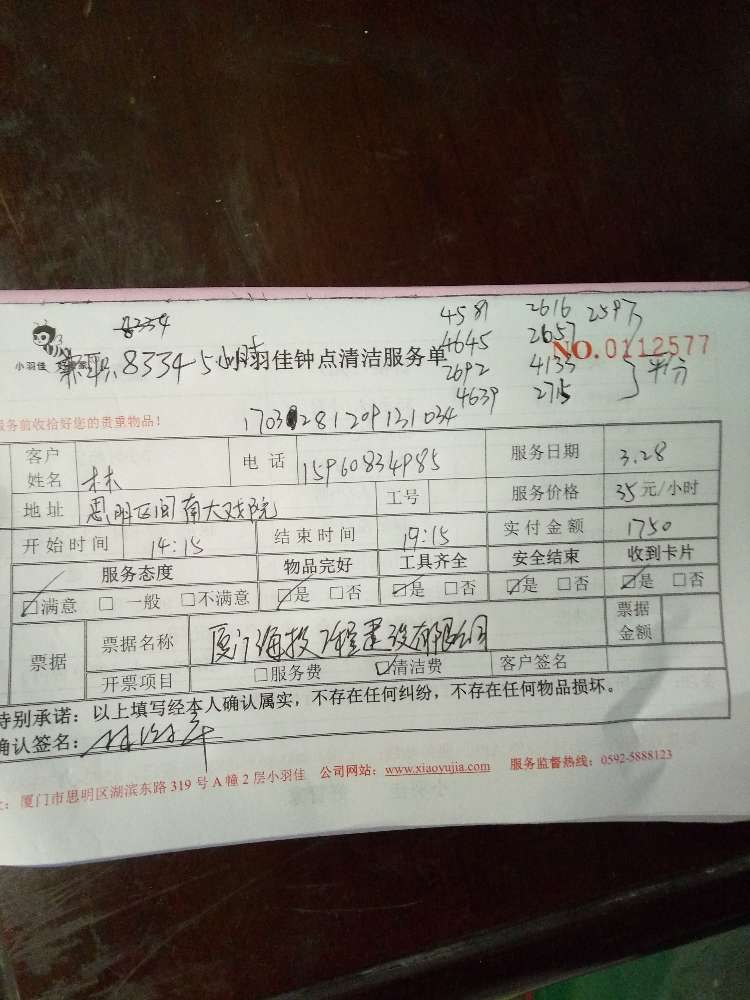 8334
4581 2616 2597
4645 2657
小羽佳
8334 5小时
小羽佳钟点清洁服务单
NO.0112577
2692 4133
4639 2715 平分
服务前收拾好您的贵重物品!
1703281209121034
客户姓名 林 电话 15960834985 服务日期 3.28
地址 思明区闽南大戏院 工号 服务价格 35元/小时
开始时间 14:15 结束时间 19:15 实付金额 1750
服务态度 物品完好 工具齐全 安全结束 收到卡片
☑满意 □一般 □不满意 ☑是 □否 ☑是 □否 ☑是 □否 ☑是 □否
票据 票据名称 厦门海投工程建设有限公司 票据金额
开票项目 □服务费 ☑清洁费 客户签名
特别承诺:以上填写经本人确认属实,不存在任何纠纷,不存在任何物品损坏。
确认签名:
厦门市思明区湖滨东路319号A幢2层小羽佳 公司网站:www.xiaoyujia.com 服务监督热线:0592-5888123